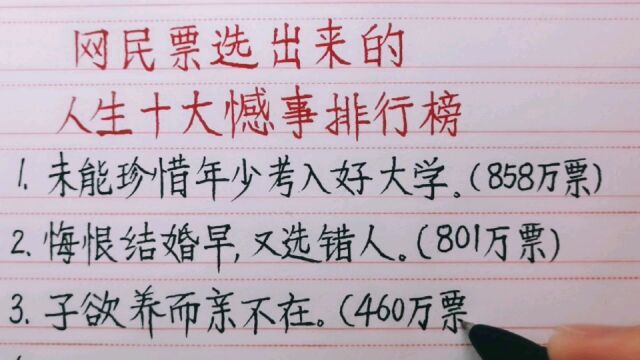 网民票选出来的
人生十大憾事排行榜
1. 未能珍惜年少考入好大学。(858万票)
2. 悔恨结婚早,又选错人。(801万票)
3. 子欲养而亲不在。(460万票